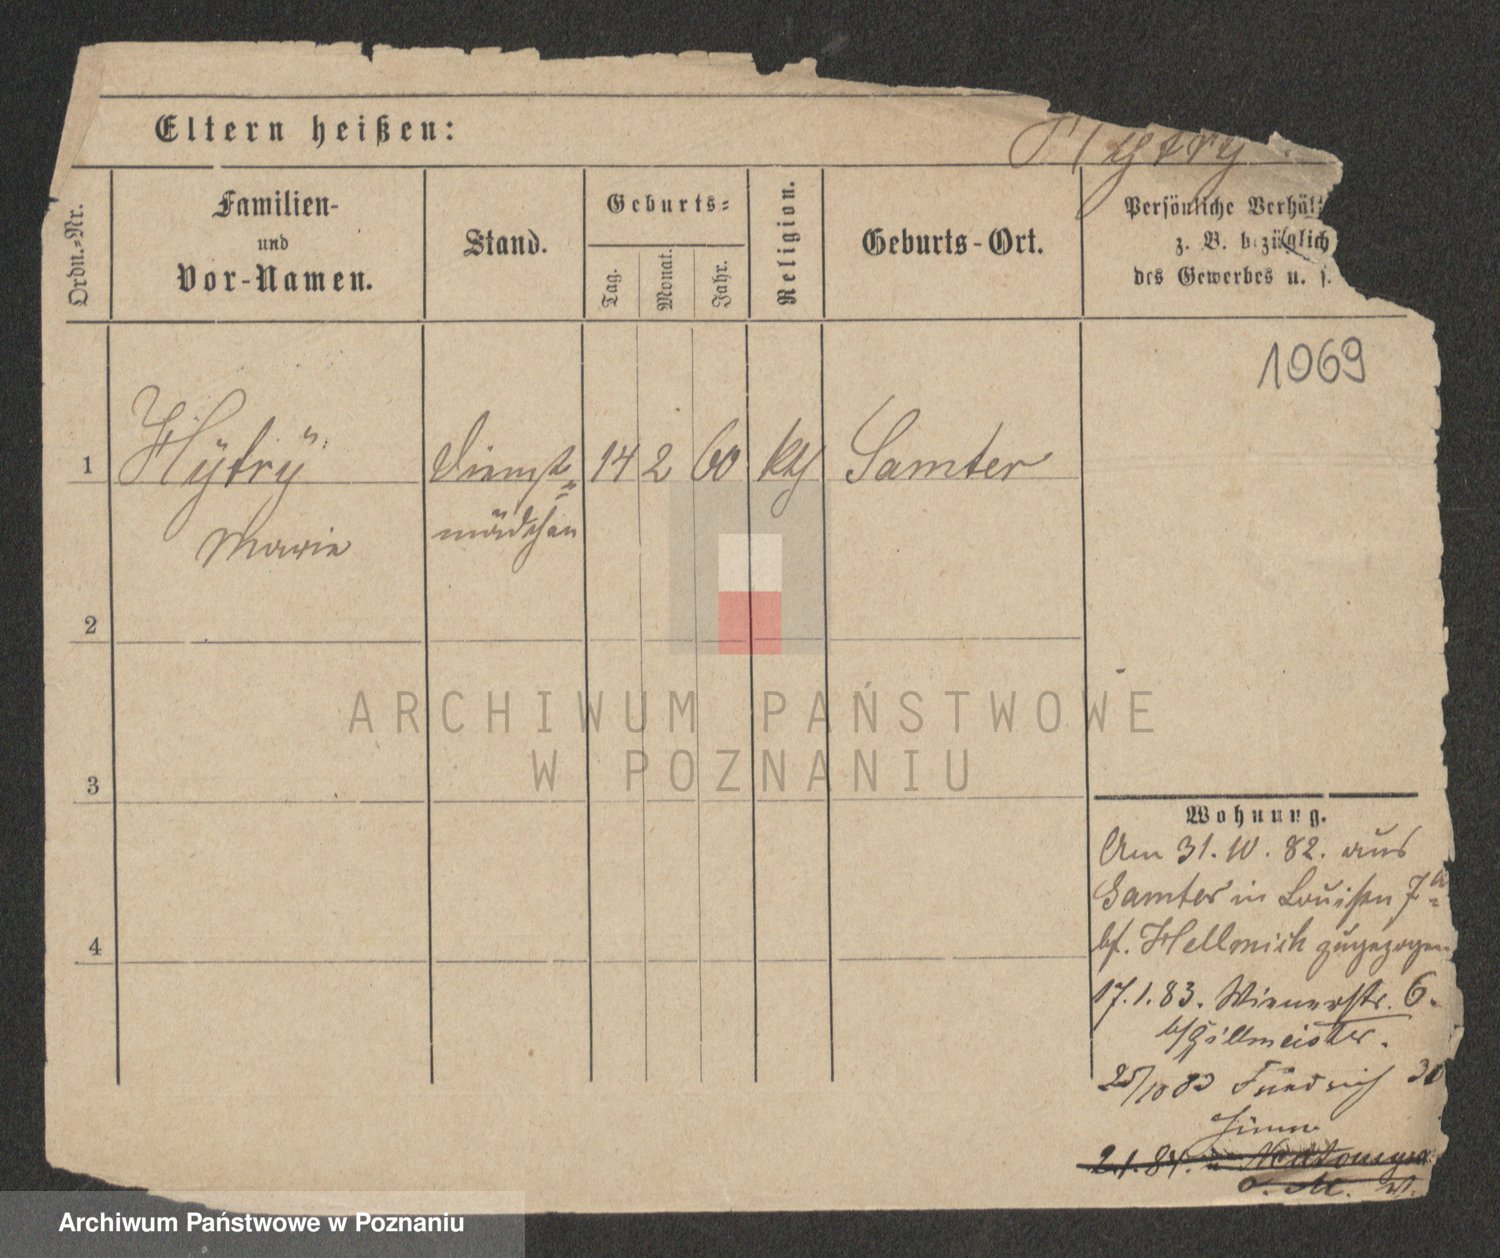 Eltern heißen:
Hytry
Ordn.-Nr.
Familien-
und
Vor-Namen.
Stand.
Geburts-
Tag.
Monat.
Jahr.
Religion.
Geburts-Ort.
Persönliche Verhäl
z. B. bezüglich
des Gewerbes u. s.
1069
1 Hÿtrÿ Dienst= 14 2 60 kth Samter
Marie mädchen
2
3
4
Wohnung.
Am 31.10.82. aus
Samter in Louisen 7a
bf. Hellmich zugezogen
17.1.83. Wienerstr. 6.
bf Gillmeister.
25/10 83 Friedrich 30
2.1.84.
ARCHIWUM PAŃSTWOWE
W POZNANIU
Archiwum Państwowe w Poznaniu